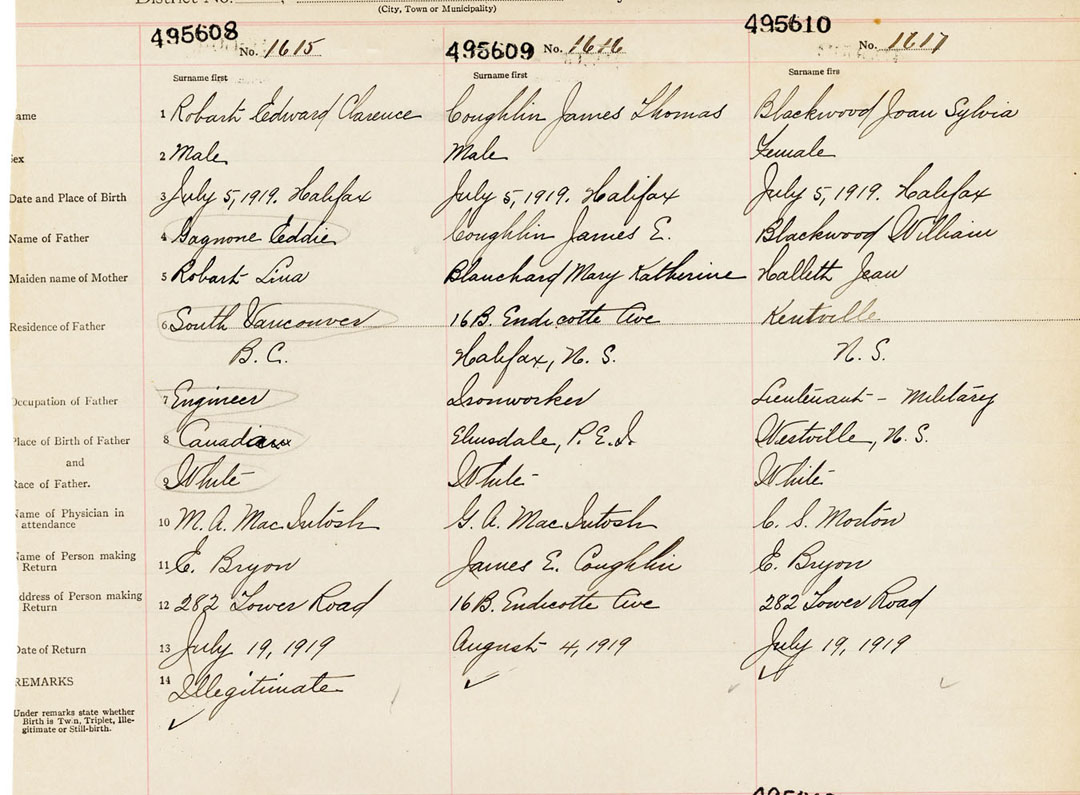 District No.
(City, Town or Municipality)
495608 No. 1615 495609 No. 1616 495610 No. 1617
Surname first Surname first Surname firs
ame 1 Robart Edward Clarence Coughlin James Thomas Blackwood Joan Sylvia
ex 2 Male Male Female
Date and Place of Birth 3 July 5, 1919. Halifax July 5, 1919. Halifax July 5, 1919. Halifax
Name of Father 4 Gagnone Eddie Coughlin James E. Blackwood William
Maiden name of Mother 5 Robart Lina Blanchard Mary Katherine Hallett Jean
Residence of Father 6 South Vancouver 16B. Endicotte Ave Kentville
B.C. Halifax, N. S. N. S.
Occupation of Father 7 Engineer Ironworker Lieutenant - Military
Place of Birth of Father 8 Canadian Elmsdale, P.E.I. Westville, N.S.
and
Race of Father. 9 White White White
Name of Physician in
attendance 10 M. A. MacIntosh G. A. MacIntosh C. S. Morton
Name of Person making
Return 11 E. Bryon James E. Coughlin E. Bryon
ddress of Person making
Return 12 282 Tower Road 16B. Endicotte Ave 282 Tower Road
Date of Return 13 July 19, 1919 August 4, 1919 July 19, 1919
REMARKS 14 Illegitimate
Under remarks state whether
Birth is Twin, Triplet, Ille-
gitimate or Still-birth.